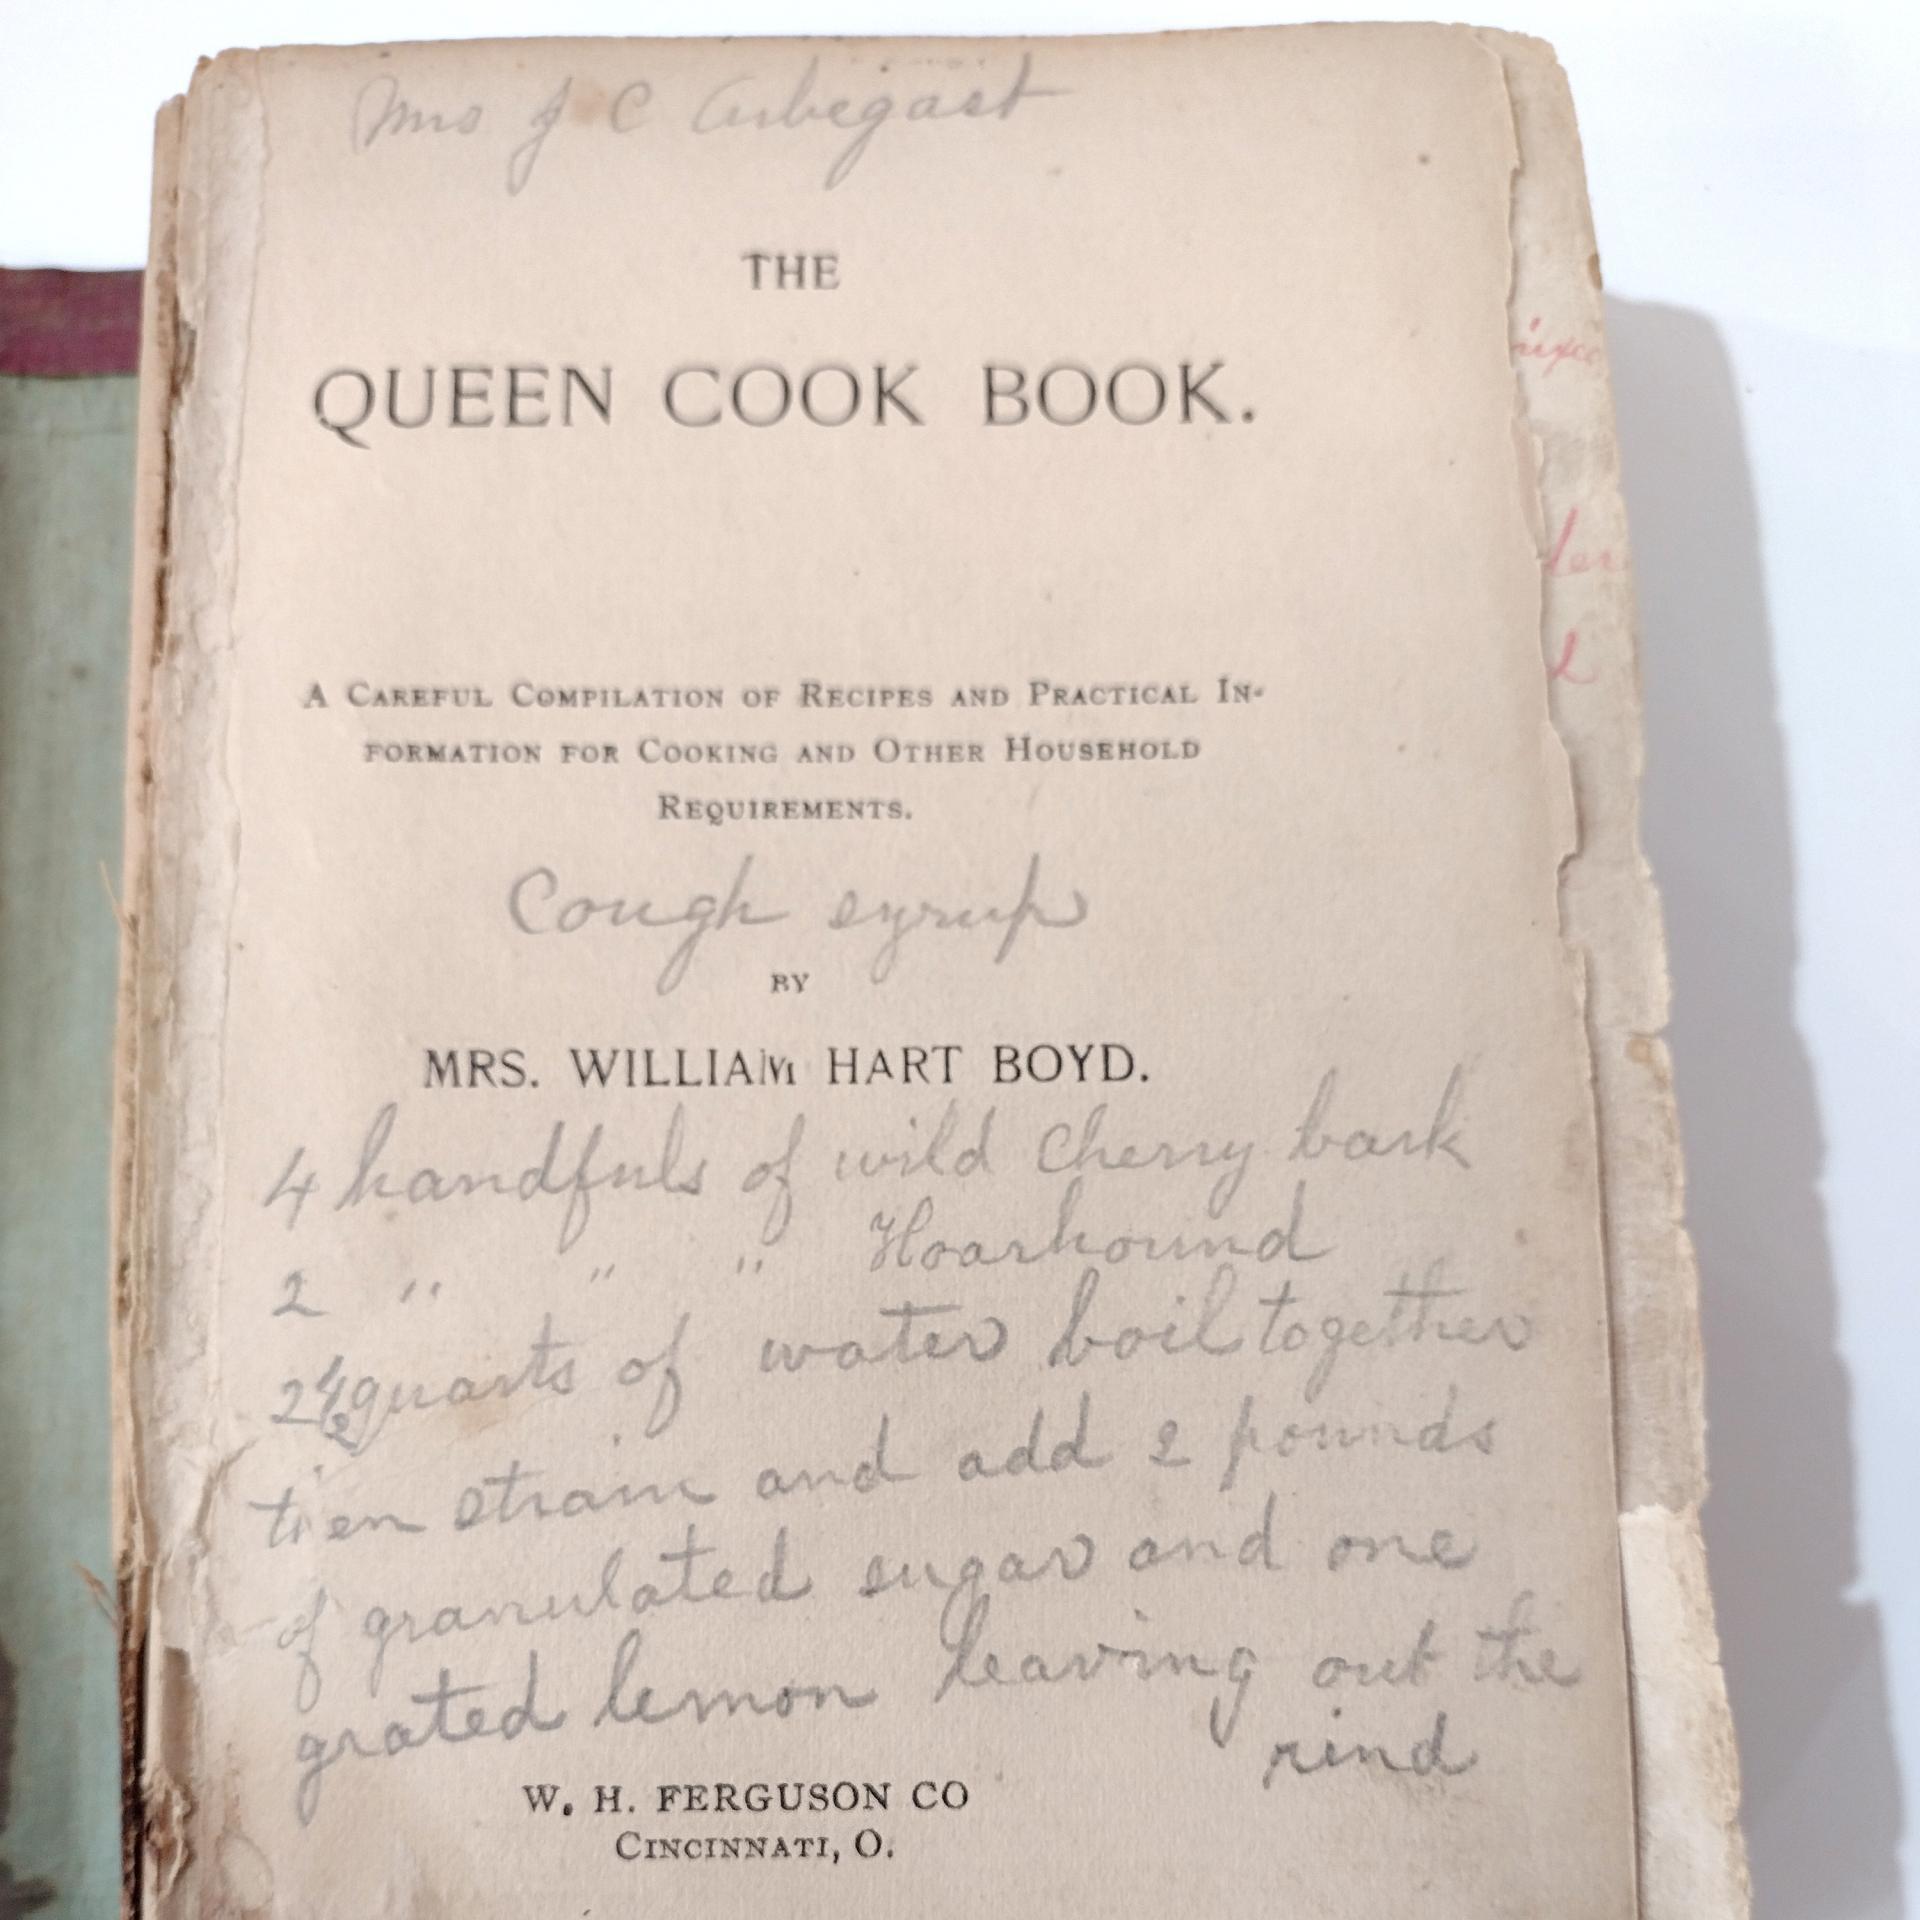 Mrs J C Arbegast
THE
QUEEN COOK BOOK.
A CAREFUL COMPILATION OF RECIPES AND PRACTICAL IN-
FORMATION FOR COOKING AND OTHER HOUSEHOLD
REQUIREMENTS.
Cough syrup
BY
MRS. WILLIAM HART BOYD.
4 handfuls of wild Cherry bark
2 " " " Hoarhound
2 1/2 quarts of water boil together
then strain and add 2 pounds
of granulated sugar and one
grated lemon leaving out the
rind
W. H. FERGUSON CO
CINCINNATI, O.